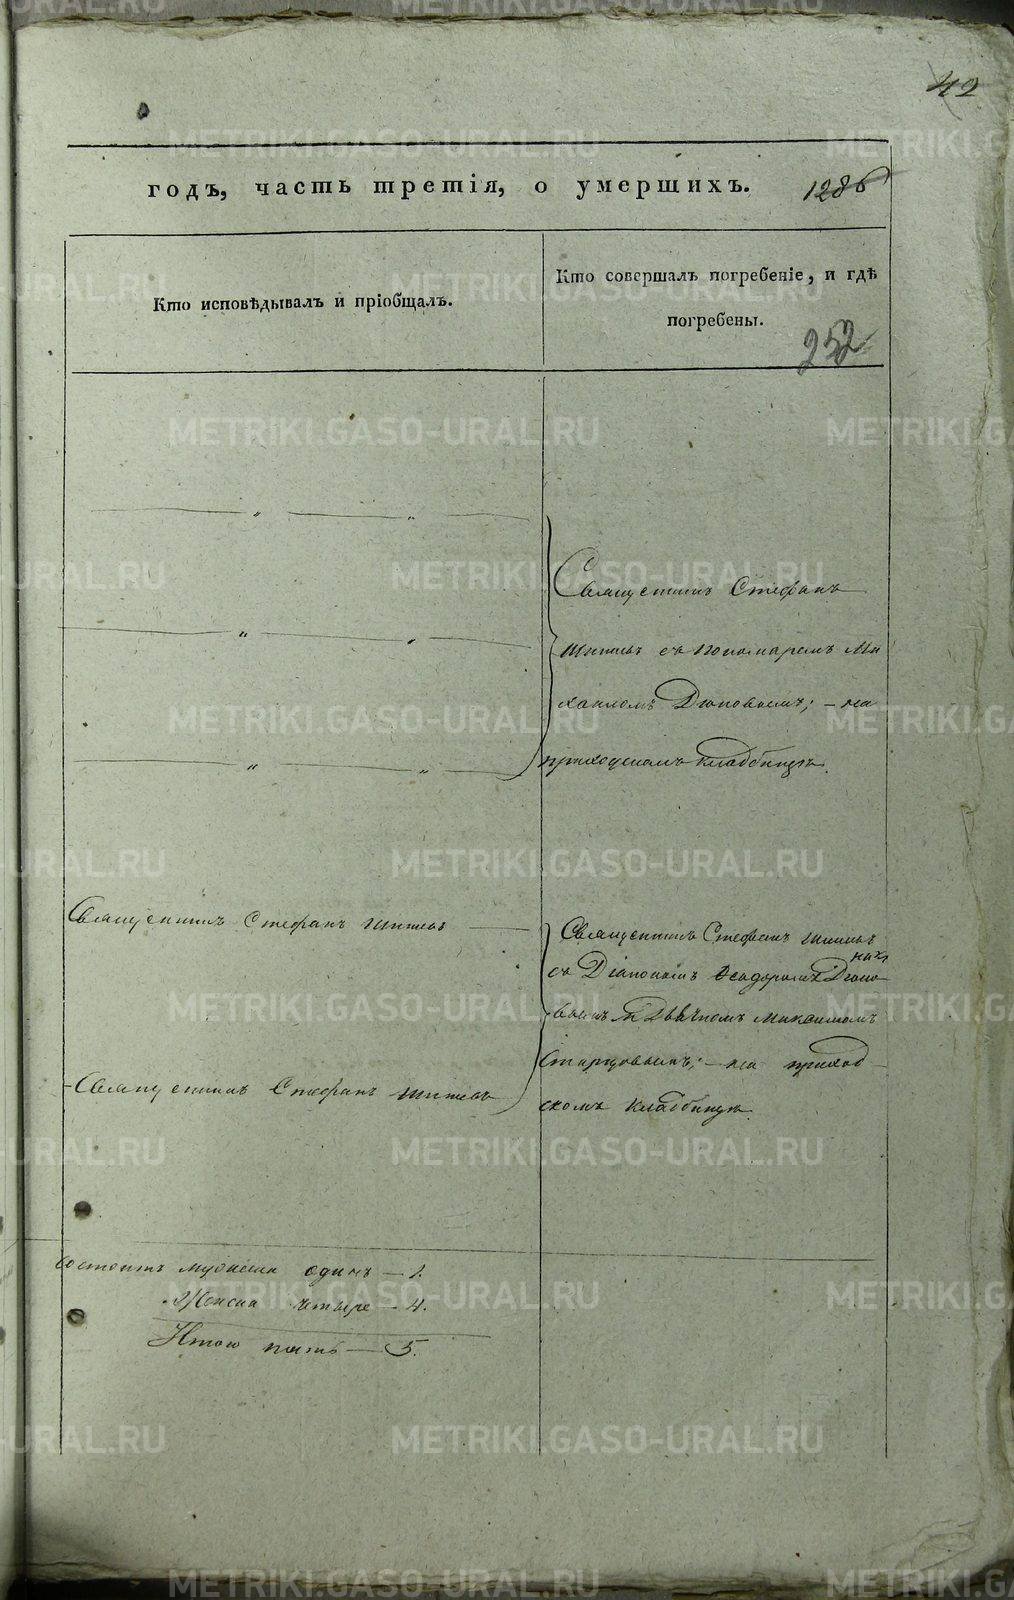 42
годъ, часть третія, о умершихъ. 1286
Кто исповѣдывалъ и пріобщалъ.
Кто совершалъ погребеніе, и гдѣ
погребены.
252
Священникъ Стефанъ
съ пономаремъ Ми
хаиломъ ; – на
приходскомъ кладбищѣ.
Священникъ Стефанъ
Священникъ Стефанъ
съ Діакономъ Ѳеодоромъ
вымъ и Дьячкомъ Максимомъ
Старцовымъ; – на приход
скомъ кладбищѣ.
Священникъ Стефанъ
состоитъ мужеска одинъ – 1.
Женска четыре – 4.
Итого пять – 5.
METRIKI.GASO-URAL.RU